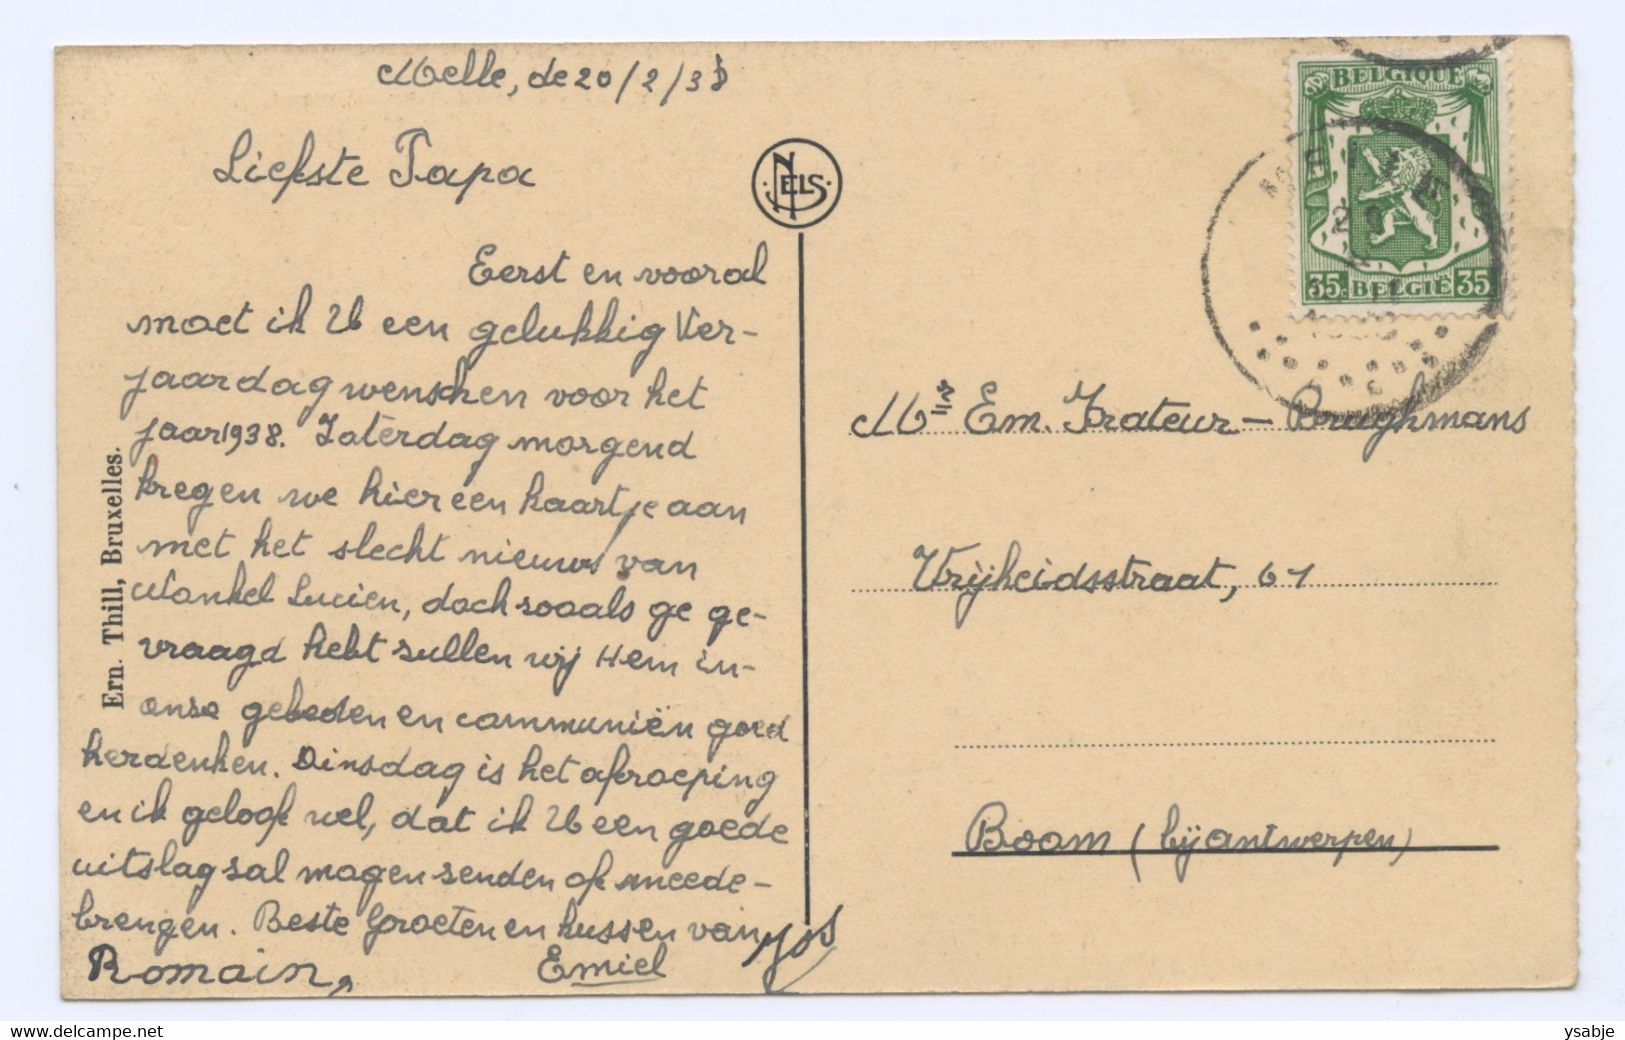 Melle, de 20/2/38
Liefste Papa
Eerst en vooral
moet ik U een gelukkig Ver-
jaardag wenschen voor het
jaar 1938. Zaterdag morgend
kregen we hier een kaartje aan
met het slecht nieuws van
Nonkel Lucien, doch zooals ge ge-
vraagd hebt zullen wij Hem in-
onze gebeden en communiën goed
herdenken. Dinsdag is het afroeping
en ik geloof wel, dat ik U een goede
uitslag zal mogen zenden of meede-
brengen. Beste Groeten en kussen van
Jos
Romain, Emiel
Ern. Thill, Bruxelles.
NELS
BELGIQUE
35c BELGIË 35
MELLE
Mr Em. Frateur - Brughmans
Vrijheidsstraat, 61
Boom (bij antwerpen)
ysabje
delcampe.net